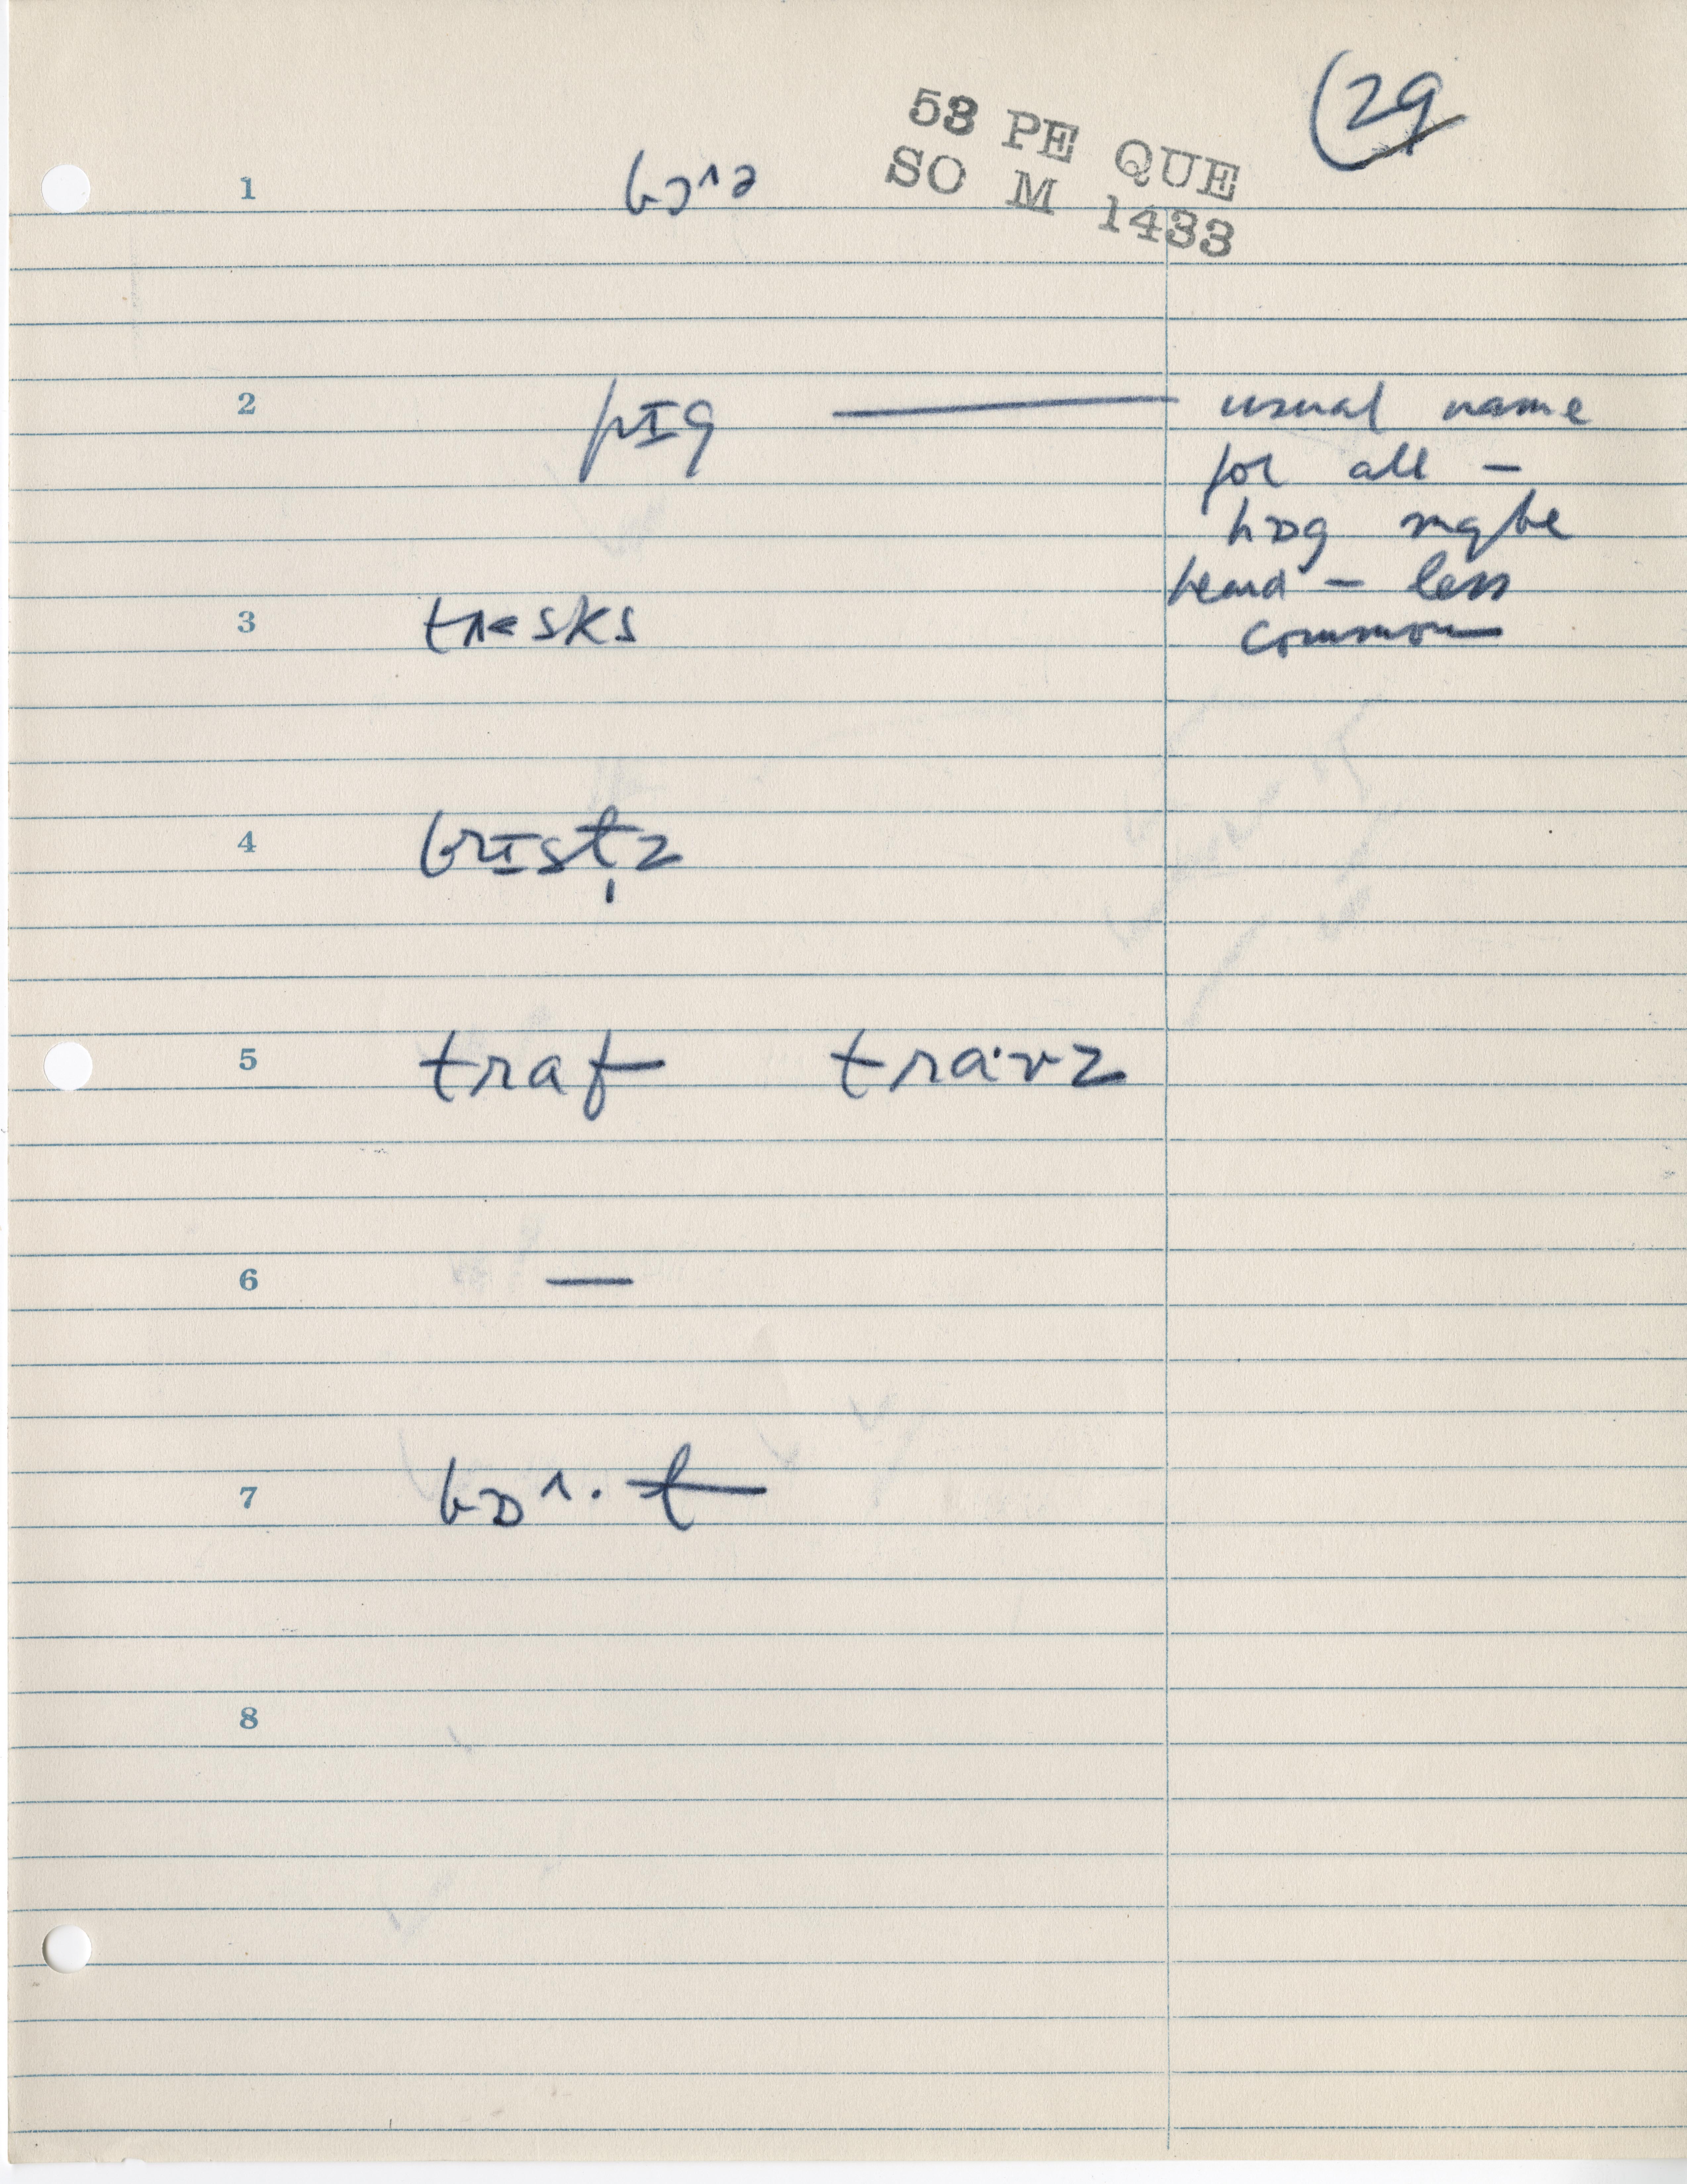 29
53 PE QUE
SO M 1433
1 bɔ^ɹə
2 pɪg — usual name
for all —
hɒg maybe
heard — less
common
3
4 brɪst̩z
5 traf tra·vz
6 —
7
8